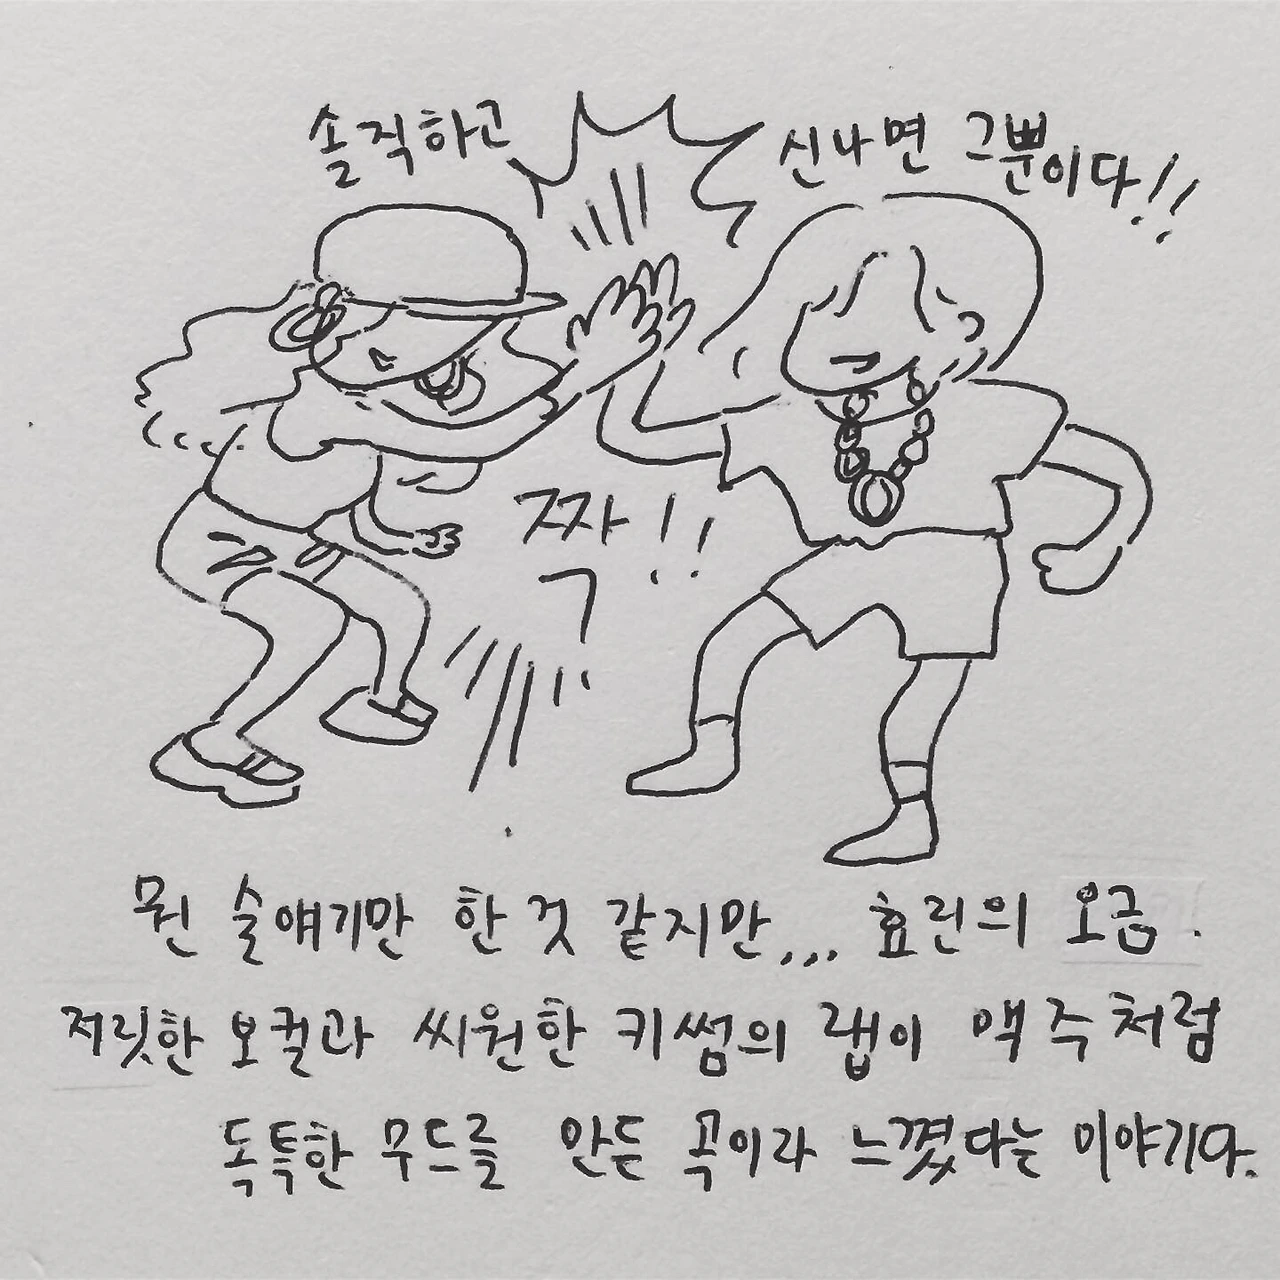 솔직하고
신나면 그뿐이다!!
짝!!
뭔 술얘기만 한 것 같지만... 효린의 오금.
저릿한 보컬과 씨원한 키썸의 랩이 맥주처럼
독특한 무드를 만든 곡이라 느꼈다는 이야기다.